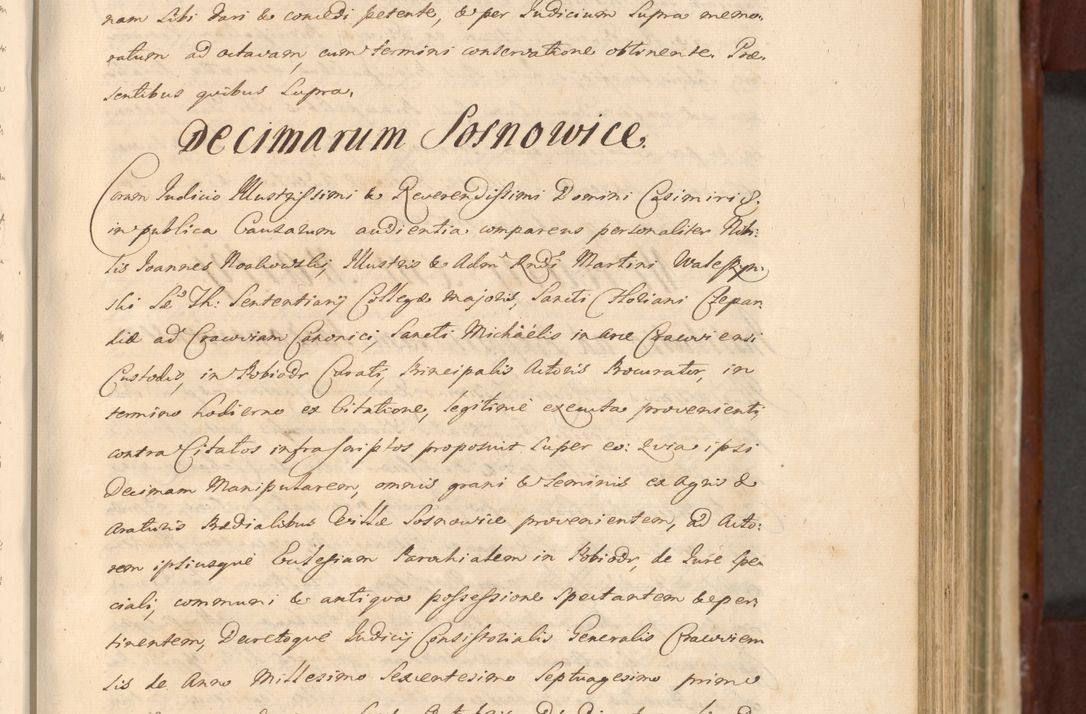 nam Sibi dari & concedi petente, & per Judicium Supra memo-
ratum ad octavam, cum termini conservatione obtinente. Præ-
sentibus quibus Supra.
Decimarum Sosnowice.
Coram Judicio Illustrissimi & Reverendissimi Domini Casimiri &.
in publica Causarum audientia comparens personaliter Nobi-
lis Joannes Noskowskij Illustris & Adm. Rndi Martini Waleszyn-
ski Sæ Th: Sententiarij Collegæ Majoris, Sancti Floriani Clepar-
diæ ad Cracoviam Canonici, Sancti Michäelis in Arce Cracoviensi
Custodis, in Pobiedr Curati, Principalis Actoris Procurator, in
termino hodierno ex Citatione, legitimè executa provenienti,
contra Citatos infrascriptos proposuit Super eo: Quia ipsi
Decimam Manipularem, omnis grani & Seminis ex Agris &
Araturis Prædialibus Villæ Sosnowice provenientem, ad Acto-
rem ipsiusque Ecclesiam Parochialem in Pobiedr, de Jure Spe-
ciali, communi & antiqua possessione Spectantem & per-
tinentem, Decretoque Judicij Consistorialis Generalis Cracovien
sis de Anno Millesimo Sexcentesimo Septuagesimo primo